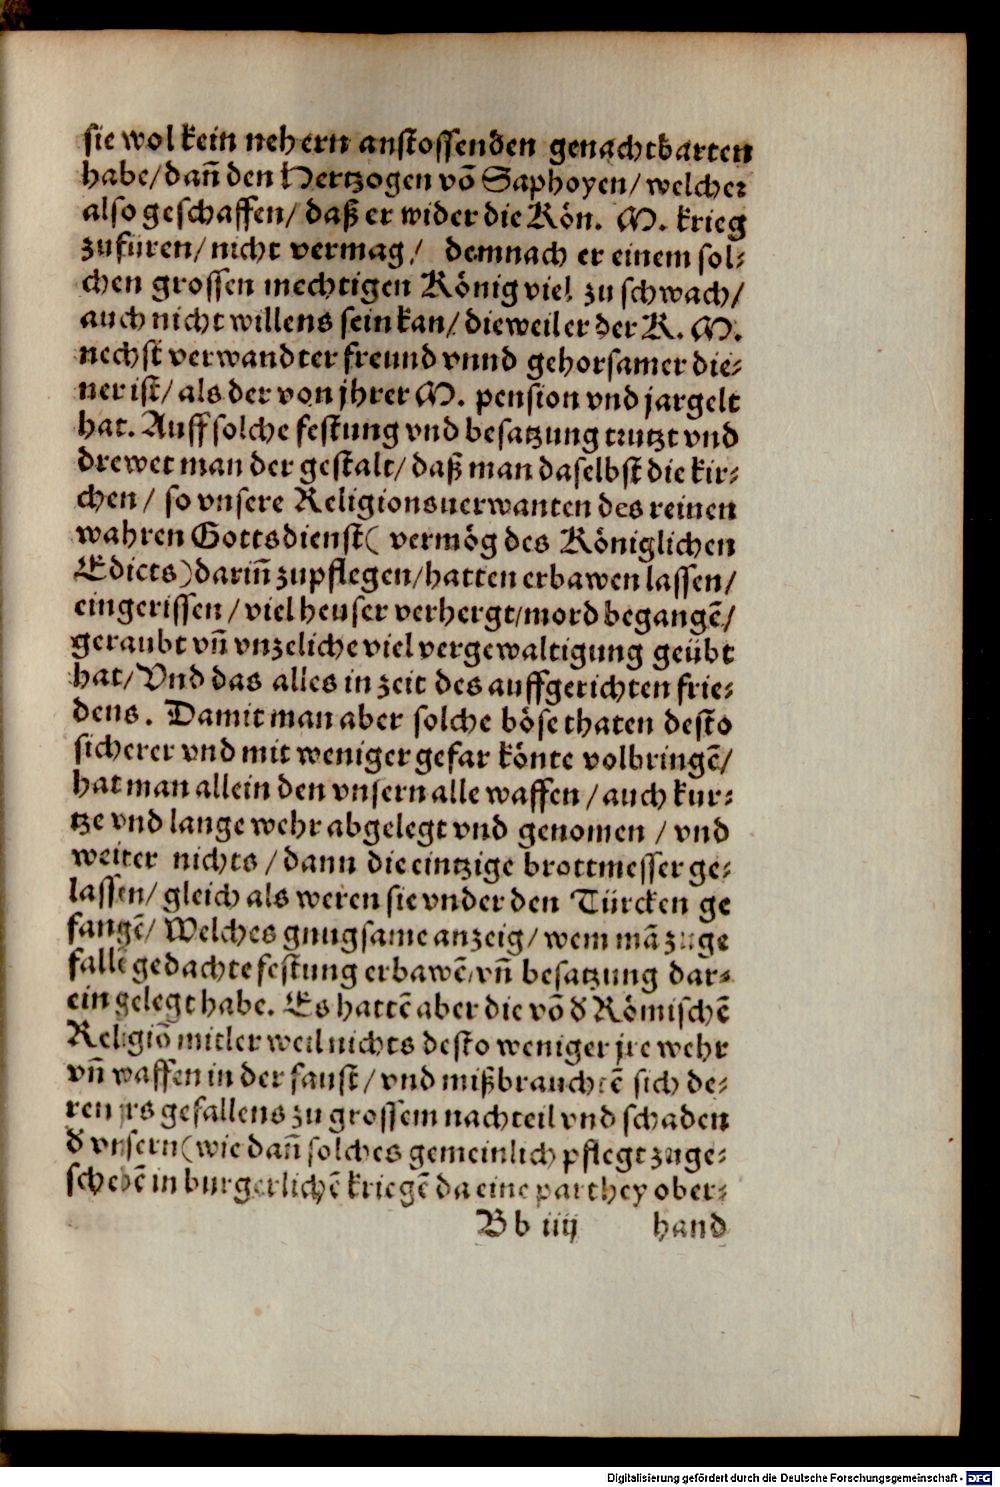 sie wol kein nehern anstossenden genachtbarten
habe/dañ den Hertzogen võ Saphoyen/ welcher
also geschaffen/ daß er wider die Kön. M. krieg
zufüren/ nicht vermag/ demnach er einem sol⸗
chen grossen mechtigen König viel zu schwach/
auch nicht willens sein kan/ dieweil er der K. M.
nechst verwandter freund vnnd gehorsamer die⸗
ner ist/ als der von jhrer M. pension vnd jargelt
hat. Auff solche festung vnd besatzung trutzt vnd
drewet man der gestalt/ daß man daselbst die kir⸗
chen/ so vnsere Religionsuerwanten des reinen
wahren Gottsdienst( vermög des Königlichen
Edicts)dariñ zupflegen/hatten erbawen lassen/
eingerissen/ viel heuser verhergt/mord begangẽ/
geraubt vñ vnzeliche viel vergewaltigung geübt
hat/ Vnd das alles in zeit des auffgerichten frie⸗
dens. Damit man aber solche böse thaten desto
sicherer vnd mit weniger gefar könte volbringẽ/
hat man allein den vnsern alle waffen/ auch kur⸗
tze vnd lange wehr abgelegt vnd genomen/ vnd
weiter nichts/ dann die eintzige brottmesser ge⸗
lassen/ gleich als weren sie vnder den Türcken ge
fangẽ/ Welches gnugsame anzeig/ wem mã zuge
fallẽ gedachte festung erbawẽ/vñ besatzung dar⸗
ein gelegt habe. Es hattẽ aber die võ d Römischẽ
Religiõ mitler weil nichts desto weniger jre wehr
vñ waffen in der faust/ vnd mißbrauchtẽ sich de⸗
ren jrs gefallens zu grossem nachteil vnd schaden
d vnsern(wie dañ solches gemeinlich pflegt zuge⸗
schehẽ in burgerlichẽ kriegẽ da eine parthey ober⸗
B b iiij hand
Digitalisierung gefördert durch die Deutsche Forschungsgemeinschaft - DFG